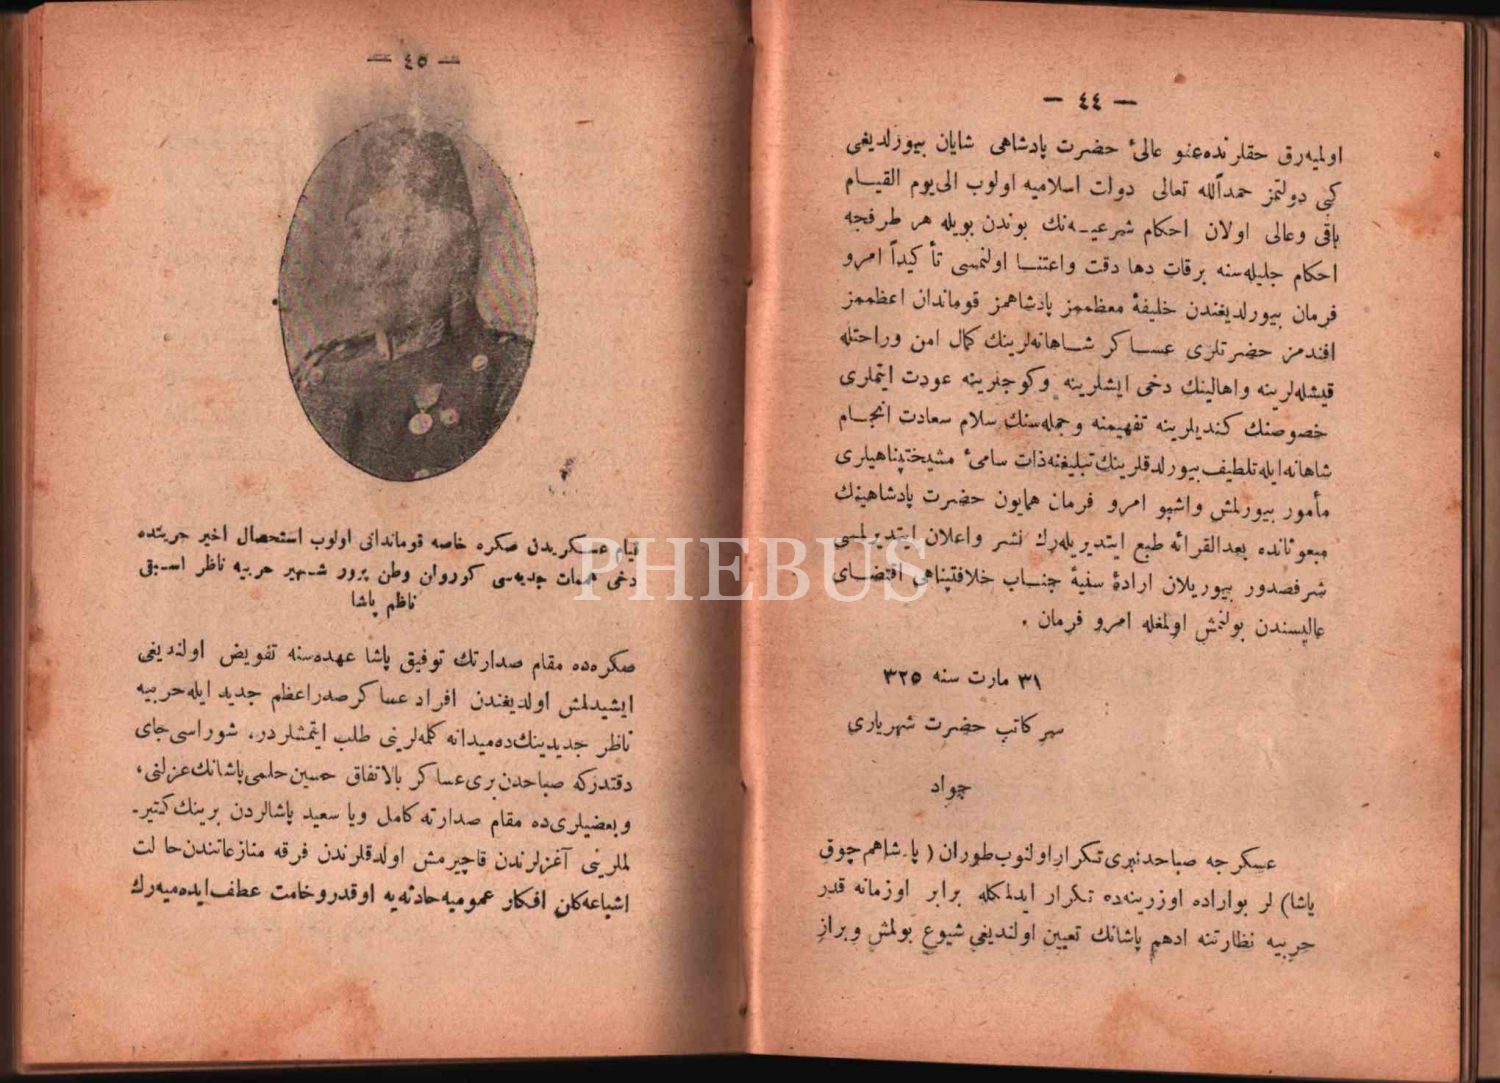 — ٤٤ —
اولمیه‌رق حقلرنده عفو عالیٔ حضرت پادشاهی شایان بیورلدیغی
کبی دولتمز حمداًلله تعالی دولت اسلامیه اولوب الی‌یوم القیـام
باقی وعالی اولان احکام شرعیـه‌نك بوندن بویله هر طرفجه
احکام جلیله‌سنه برقات دها دقت واعتنـا اولنمسی تأکیداً امرو
فرمان بیورلدیغندن خلیفهٔ معظممز پادشاهمز قوماندان اعظممز
افندمز حضرتلری عسـاکر شـاهانه‌لرینك کمال امن وراحتله
قیشله‌لرینه واهالینك دخی ایشلرینه وکوجلرینه عودت ایتملری
خصوصنك کندیلرینه تفهیمنه وجمله‌سنك سلام سعادت انجـام
شاهانه ایله تلطیف بیورلدقلرینك تبلیغنه ذات سامیٔ مشیختپناهیلری
مأمور بیورلمش واشبو امرو فرمان همایون حضرت پادشاهینك
مبعوثانده بعدالقرائه طبع ایتدیریله‌رك نشر واعلان ایتدیرلمسی
شرفصدور بیوریلان ارادهٔ سنیهٔ جنـاب خلافتپناهی اقتضـای
عالیسندن بولنمش اولمغله امرو فرمان .
٣١ مارت سنه ٣٢٥
سر کاتب حضرت شهریاری
جواد
عسکرجه صباحدنبری تکرار اولنوب طوران ( پادشاهم چوق
یاشا) لر بواراده اوزرینه‌ده تکرار ایدلمکله برابر اوزمانه قدر
حربیه نظارتنه ادهم پاشانك تعیین اولندیغی شیوع بولمش وبراز
— ٤٥ —
قیام عسکریدن صکره خاصه قوماندانی اولوب استحصال اخیر حریتده
دخی همات جدیه‌سی کوروان وطن پرور شـهیر حربیه ناظر اسـبقی
ناظم پاشا
صکره‌ده مقام صدارتك توفیق پاشا عهده‌سنه تفویض اولندیغی
ایشیدلمش اولدیغندن افراد عساکر صدراعظم جدید ایله حربیه
ناظر جدیدینك ده میدانه کلمه‌لرینی طلب ایتمشلردر. شوراسی جای
دقتدرکه صباحدن بری عساکر بالاتفاق حسین حلمی پاشانك عزلنی،
وبعضیلری‌ده مقام صدارته کامل ویا سعید پاشالردن برینك کتیر-
لملرینی آغزلرندن قاچیرمش اولدقلرندن فرقه منازعاتندن حالت
اشباعه کلن افکار عمومیه حادثه‌یه اوقدر وخامت عطف ایده‌میه‌رك
PHEBUS